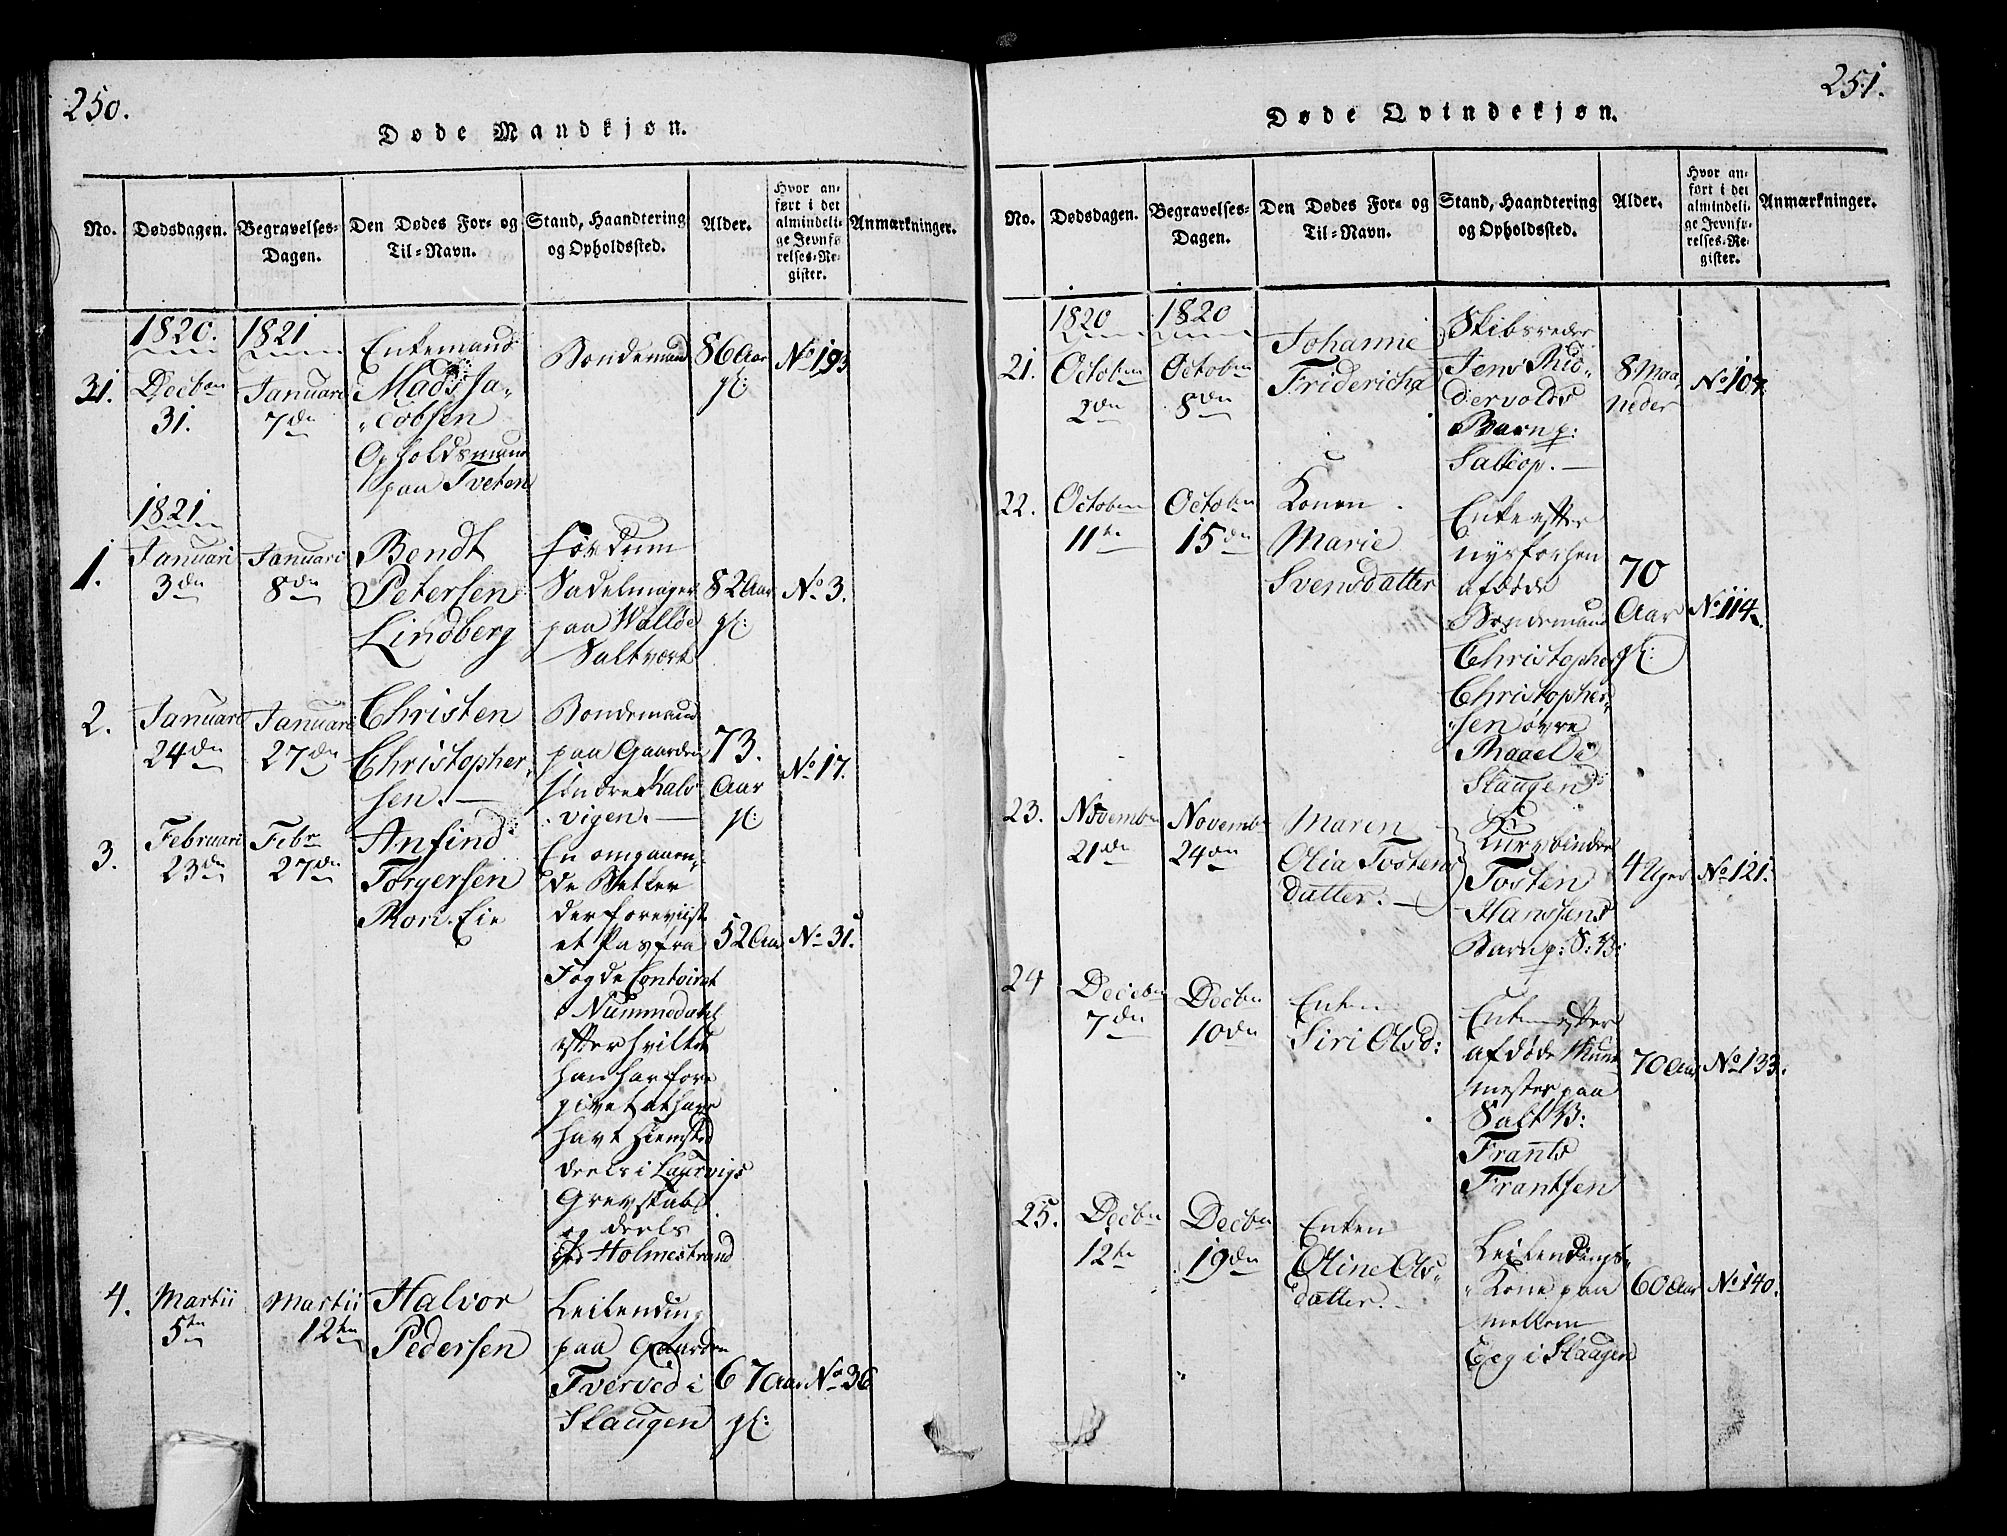 250.
Døde Mandkjøn.
No.
Dødsdagen.
Begravelses-
Dagen.
Den Dødes For- og
Til-Navn.
Stand, Haandtering
og Opholdssted.
Alder.
Hvor an-
ført i det
almindeli-
ge Jevnfø-
relses-Re-
gister.
Anmærkninger.
31.
1820.
Decbr
31.
1821
Januari
7de
Enkemand
Mads Ja-
cobsen
Opholdsmand
paa Tveten
Bondemand
86 Aar
gl:
No 193
1821
1.
Januari
3de
Januari
8de
Bendt
Petersen
Lindberg
fordum
Sadelmager
paa Walløe
Saltværk
82 Aar
gl:
No 3.
2.
Januari
24de
Januari
27de
Christen
Christopher-
sen.
Bondemand
paa Gaarden
søndre Kals-
vigen.
73.
Aar
gl:
No 17.
3.
Februari
23de
Febr
27de
Anfind
Torgersen
Mori. Eie
En omgaaen-
de Betler
der foreviist
et Pas fra
Fogde Contoiret
Nummedahl
efter hvilket
han har fore
givet at have
havt Hiemsted
deels i Laurvigs
Grevskab
og deels
Holmestrand
52 Aar
No 31.
4.
Martii
5te
Martii
12te
Halvor
Pedersen
Leilending
paa Gaarden
Tverved i
Slaugen
67 Aar
gl:
No 36
251.
Døde Qvindekjøn.
No.
Dødsdagen.
Begravelses-
Dagen.
Den Dødes For- og
Til-Navn.
Stand, Haandtering
og Opholdssted.
Alder.
Hvor an-
ført i det
almindeli-
ge Jevnfø-
relses-Re-
gister.
Anmærkninger.
21.
1820
October
2de
1820
October
8de
Johanne
Fridericha
Skibsreder
Jens Rid-
dervolds
Barn p:
8 Maa
neder
No 107.
22.
October
11te
October
15de
Konen
Marie
Svensdatter
Enke efter
nys forhen
afdøde
Bondemand
Christopher
Christopher-
sen øvre
Slaugen
70
Aar
gl:
No 114.
23.
Novembr
21de
Novembr
24de
Maren
Olia Tostens
datter.
Kurvbinder
Tosten
Hanssens
Barn p: S: V:
4 Uger
No 121.
24
Decebr
7de
Decbr
10de
Enken
Siri Olsd:
Enke efter
afdøde Muur
mester paa
Salt V:
Frants
Frantsen
70 Aar
No 133.
25.
Decbr
12te
Decbr
19de
Enken
Oline Ols-
datter.
Leilendings-
Kone paa
mellem
Eeg i Slaugen
60 Aar
No 140.